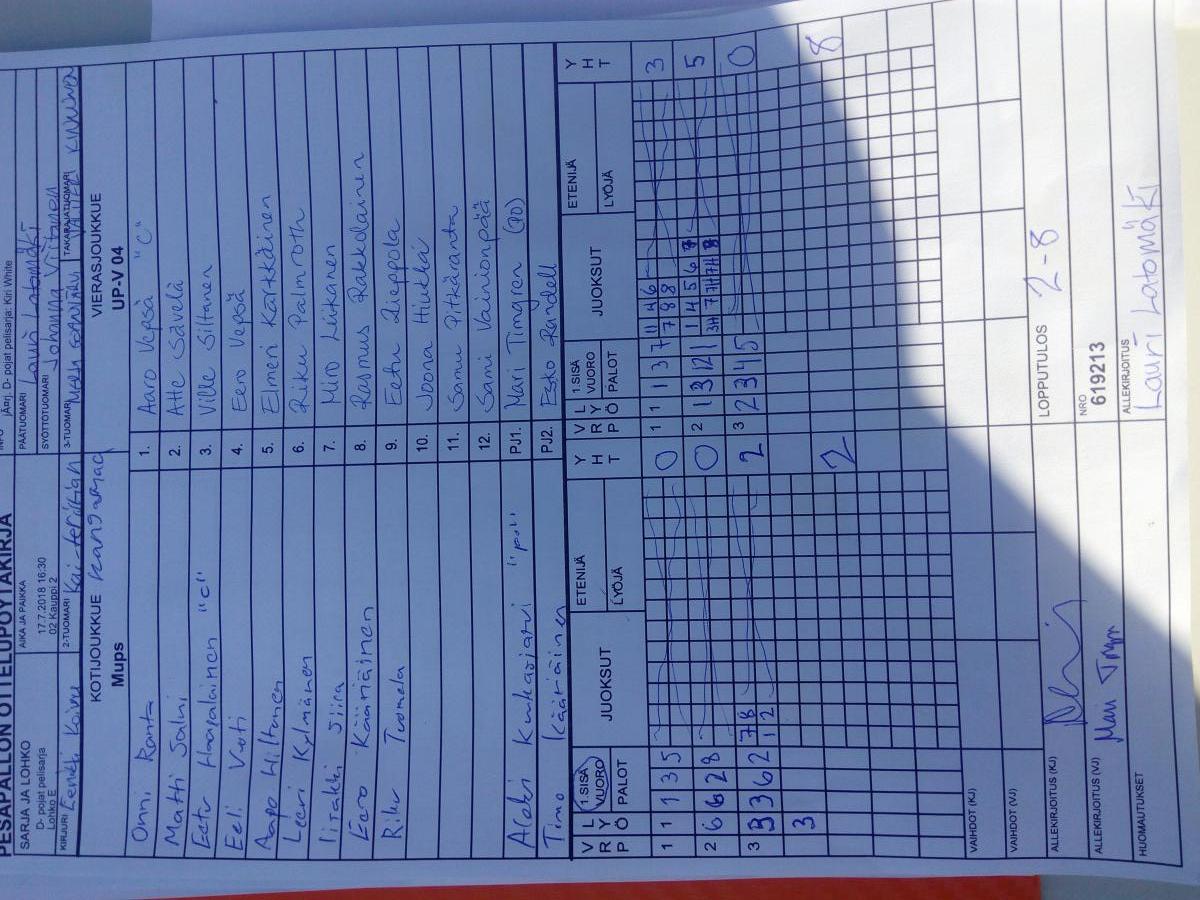 PESÄPALLON OTTELUPÖYTÄKIRJA
SARJA JA LOHKO
D- pojat pelisarja
Lohko E
AIKA JA PAIKKA
17.7.2018 16:30
02 Kauppi 2
D- pojat pelisarja: Kiri White
PÄÄTUOMARI Lauri Latomäki
SYÖTTÖTUOMARI Johanna Viitanen
KIRJURI
2-TUOMARI
3-TUOMARI
TAKARAJATUOMARI
KOTIJOUKKUE
Mups
VIERASJOUKKUE
UP-V 04
Onni Ranta 1. Aaro Vepsä "C"
Matti Salmi 2. Atte Savela
Eetu Haapalainen "C" 3. Ville Siltanen
Eeli Voti 4. Eero Vepsä
Aapo Hiltunen 5. Elmeri Kärkkäinen
Leevi Kylmänen 6. Riku Palmroth
Iisakki Siira 7. Miro Liikanen
Eero Kääriäinen 8. Rasmus Rakkolainen
Riku Tuomela 9. Eetu Lieppola
10. Joona Hiukka
11. Samu Pitkäranta
12. Sami Vainionpää
Aleksi Kuhajärvi PJ1. Mari Timgren (PJ)
Timo Kääriäinen PJ2. Esko Randell
VRP LYÖ 1.SISÄ VUORO PALOT JUOKSUT ETENIJÄ LYÖJÄ YHT
VRP LYÖ 1.SISÄ VUORO PALOT JUOKSUT ETENIJÄ LYÖJÄ YHT
1 1 1 3 5 0
1 1 1 3 7 11 4 6 3
7 8 8
2 6 6 2 8 0
2 1 3 12 1 1 4 5 6 7 5
3 3 3 6 2 7 8 2
1 2
3 2 3 4 5 0
3
2
8
VAIHDOT (KJ)
VAIHDOT (VJ)
LOPPUTULOS 2-8
ALLEKIRJOITUS (KJ)
ALLEKIRJOITUS (VJ)
NRO
619213
HUOMAUTUKSET
ALLEKIRJOITUS
Lauri Latomäki